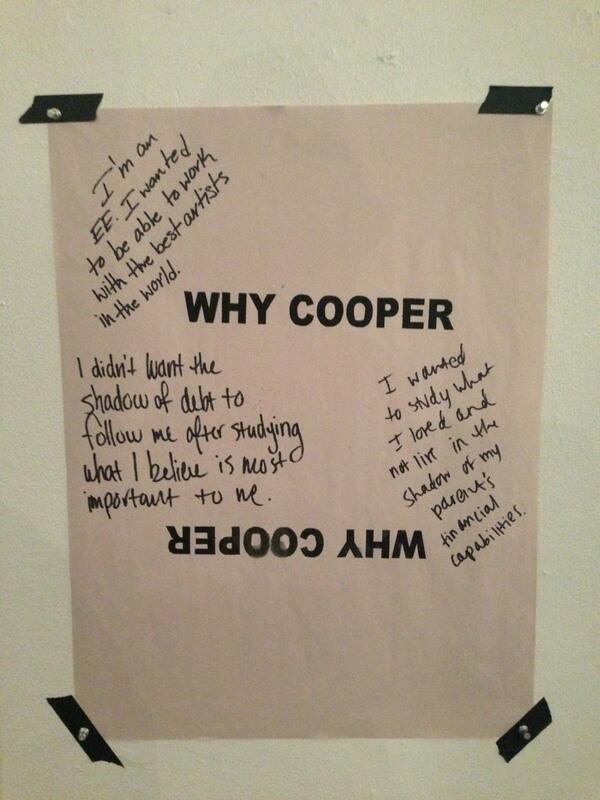 I'm an
EE. I wanted
to be able to work
with the best artists
in the world.
WHY COOPER
I didn't want the
shadow of debt to
follow me after studying
what I believe is most
important to me.
I wanted
to study what
I loved and
not live in the
shadow of my
parent's
financial
capabilities.
WHY COOPER